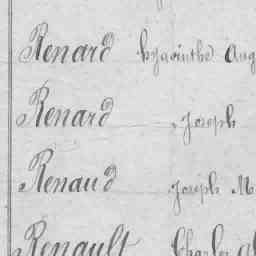 Renard hyacinthe Aug
Renard Joseph
Renaud Joseph M
Renault Charles